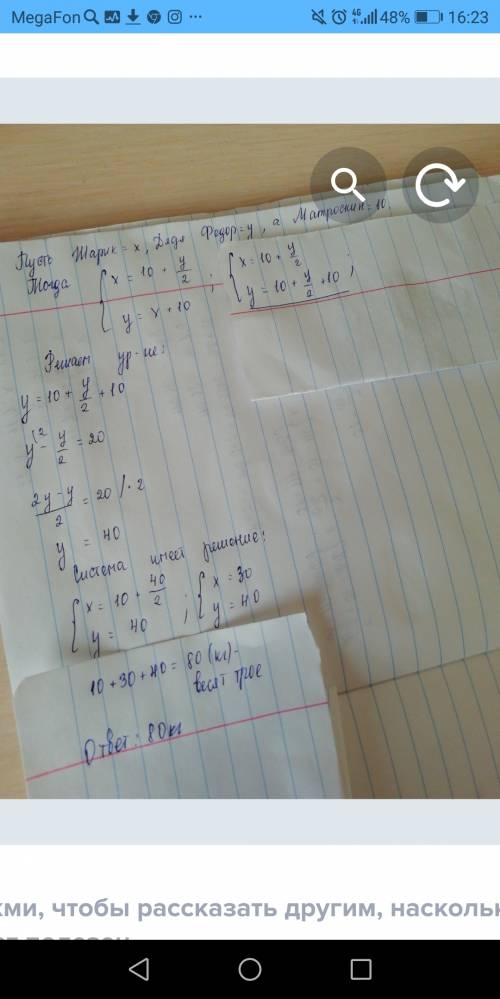 MegaFon ... 4G 48% 16:23
Пусть Шарик = x, Дядя Федор = y, а Матроскин = 10.
Тогда { x = 10 + y/2 ; { x = 10 + y/2 ;
{ y = x + 10 { y = 10 + y/2 + 10
Решаем ур-ие:
y = 10 + y/2 + 10
y (2 - y/2 = 20
2y - y / 2 = 20 / · 2
y = 40
Система имеет решение:
{ x = 10 + 40/2 ; { x = 30
{ y = 40 { y = 40
10 + 30 + 40 = 80 (кг) -
весят трое
Ответ: 80кг
кми, чтобы рассказать другим, наскольк